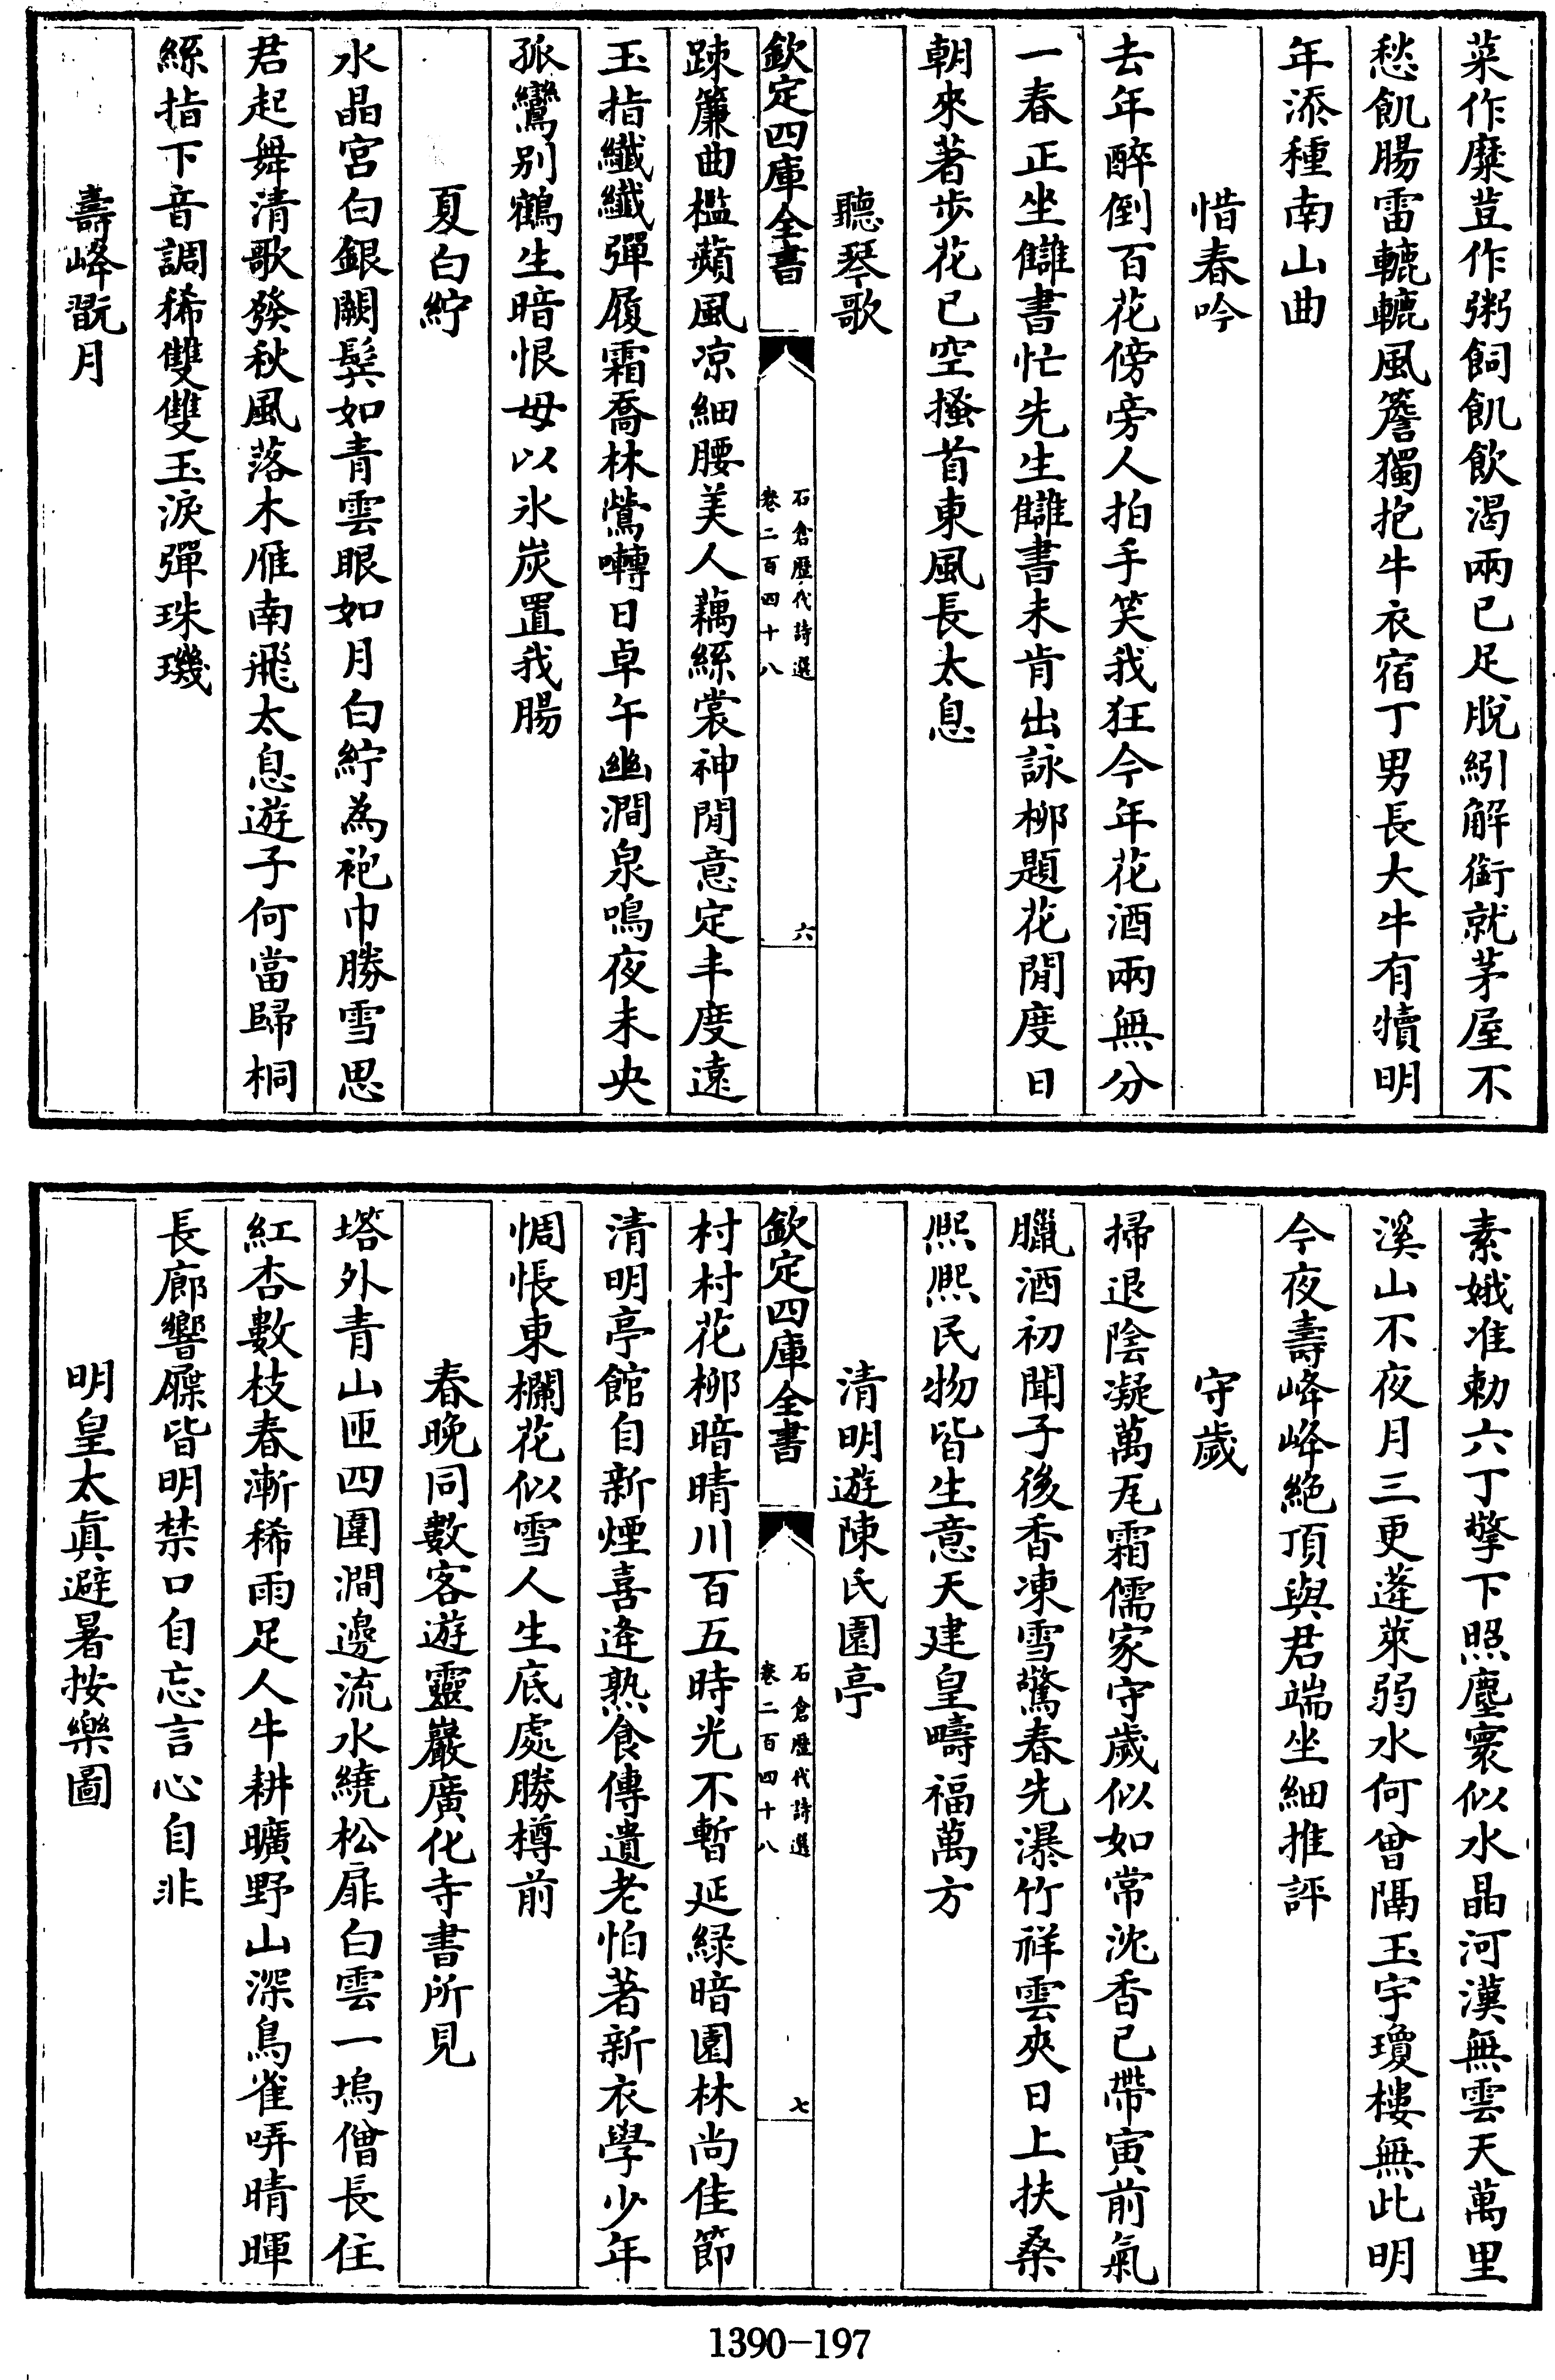 菜作糜荳作粥飼飢飲渴兩已足脫紖解銜就茅屋不
愁飢腸雷轆轆風簷獨抱牛衣宿丁男長大牛有犢明
年添種南山曲
惜春吟
去年醉倒百花傍旁人拍手笑我狂今年花酒兩無分
一春正坐讎書忙先生讎書未肯出詠柳題花閒度日
朝來著步花已空搔首東風長太息
聽琴歌
欽定四庫全書
石倉歷代詩選
卷二百四十八
六
疎簾曲檻蘋風凉細腰美人藕絲裳神閒意定丰度遠
玉指纖纖彈履霜喬林鶯囀日卓午幽澗泉鳴夜未央
孤鸞別鶴生暗恨毋以氷炭置我腸
夏白紵
水晶宮白銀闕鬓如青雲眼如月白紵為袍巾勝雪思
君起舞清歌發秋風落木雁南飛太息遊子何當歸桐
絲指下音調稀雙雙玉淚彈珠璣
壽峰翫月
素娥准勅六丁擎下照塵寰似水晶河漢無雲天萬里
溪山不夜月三更蓬萊弱水何曾隔玉宇瓊樓無此明
今夜壽峰峰絶頂與君端坐細推評
守歲
掃退陰凝萬瓦霜儒家守歲似如常沈香已帶寅前氣
臘酒初聞子後香凍雪驚春先瀑竹祥雲夾日上扶桑
熙熙民物皆生意天建皇疇福萬方
清明遊陳氏園亭
欽定四庫全書
石倉歷代詩選
卷二百四十八
七
村村花柳暗晴川百五時光不暫延緑暗園林尚佳節
清明亭館自新煙喜逢熟食傳遺老怕著新衣學少年
惆悵東欄花似雪人生底處勝樽前
春晚同數客遊靈巖廣化寺書所見
塔外青山匝四圍澗邊流水繞松扉白雲一塢僧長住
紅杏數枝春漸稀雨足人牛耕曠野山深鳥雀哢晴暉
長廊響屧皆明禁口自忘言心自非
明皇太眞避暑按樂圖
1390-197